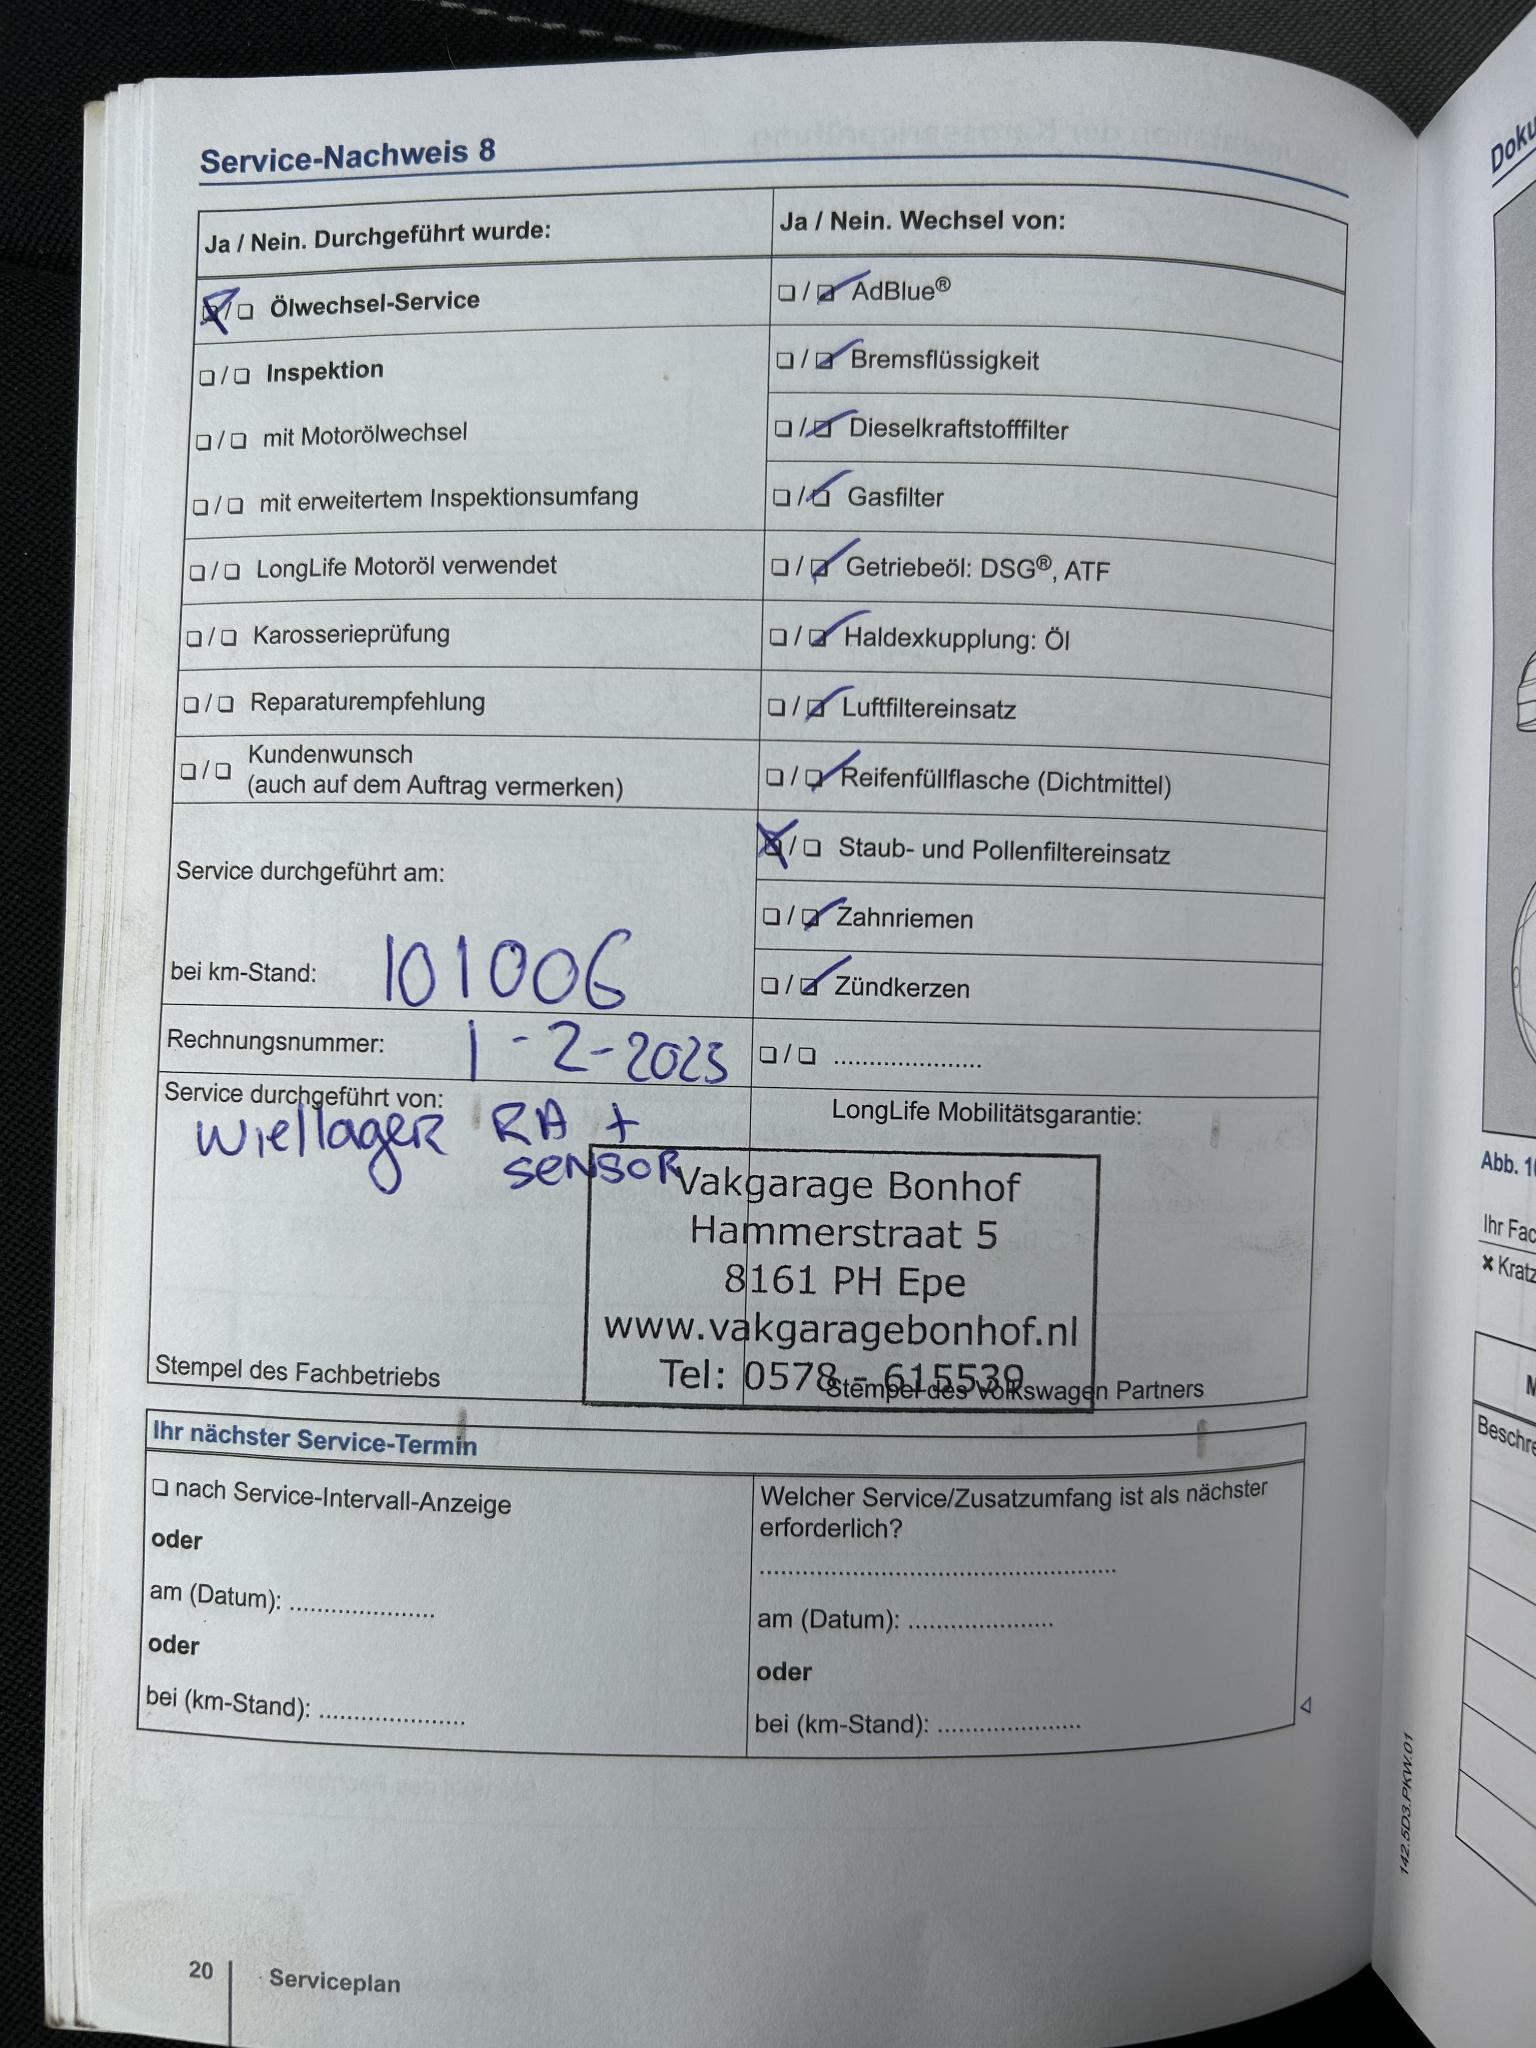 Service-Nachweis 8
Ja / Nein. Durchgeführt wurde:
❑ / ❑ Ölwechsel-Service
❑ / ❑ Inspektion
❑ / ❑ mit Motorölwechsel
❑ / ❑ mit erweitertem Inspektionsumfang
❑ / ❑ LongLife Motoröl verwendet
❑ / ❑ Karosserieprüfung
❑ / ❑ Reparaturempfehlung
❑ / ❑ Kundenwunsch
(auch auf dem Auftrag vermerken)
Service durchgeführt am:
bei km-Stand: 101006
Rechnungsnummer: 1-2-2023
Service durchgeführt von:
Wiellager RA +
sensor
Stempel des Fachbetriebs
Ja / Nein. Wechsel von:
❑ / ❑ AdBlue®
❑ / ❑ Bremsflüssigkeit
❑ / ❑ Dieselkraftstofffilter
❑ / ❑ Gasfilter
❑ / ❑ Getriebeöl: DSG®, ATF
❑ / ❑ Haldexkupplung: Öl
❑ / ❑ Luftfiltereinsatz
❑ / ❑ Reifenfüllflasche (Dichtmittel)
❑ / ❑ Staub- und Pollenfiltereinsatz
❑ / ❑ Zahnriemen
❑ / ❑ Zündkerzen
❑ / ❑ .....................
LongLife Mobilitätsgarantie:
Vakgarage Bonhof
Hammerstraat 5
8161 PH Epe
www.vakgaragebonhof.nl
Tel: 0578 - 615539
Stempel des Volkswagen Partners
Ihr nächster Service-Termin
❑ nach Service-Intervall-Anzeige
oder
am (Datum): .....................
oder
bei (km-Stand): .....................
Welcher Service/Zusatzumfang ist als nächster
erforderlich?
....................................................
am (Datum): .....................
oder
bei (km-Stand): .....................
142.5D3.PKW.01
20 Serviceplan
Abb.
Ihr